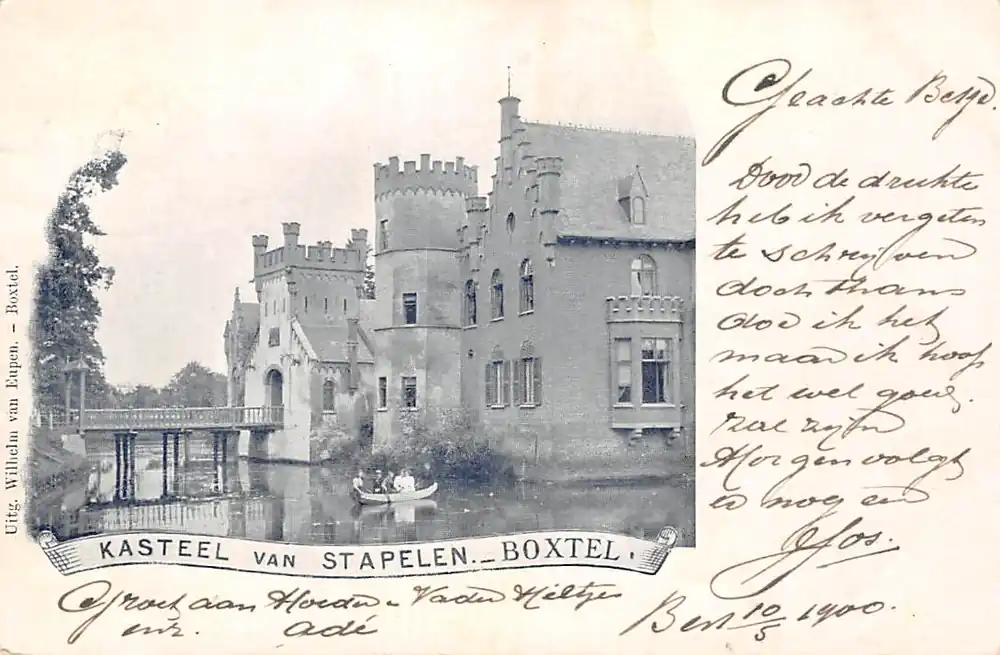 Geachte Betje.
Door de drukte
heb ik vergeten
te schrijven
doch thans
doe ik het
maar ik hoop
het wel goed.
zal zijn
Morgen volgt
er nog een
Jos.
Uitg. Wilhelm van Eupen. – Boxtel.
KASTEEL VAN STAPELEN. – BOXTEL.
Groet aan Moeder - Vader Mieltje
enz. adé
Best 10/5 1900.